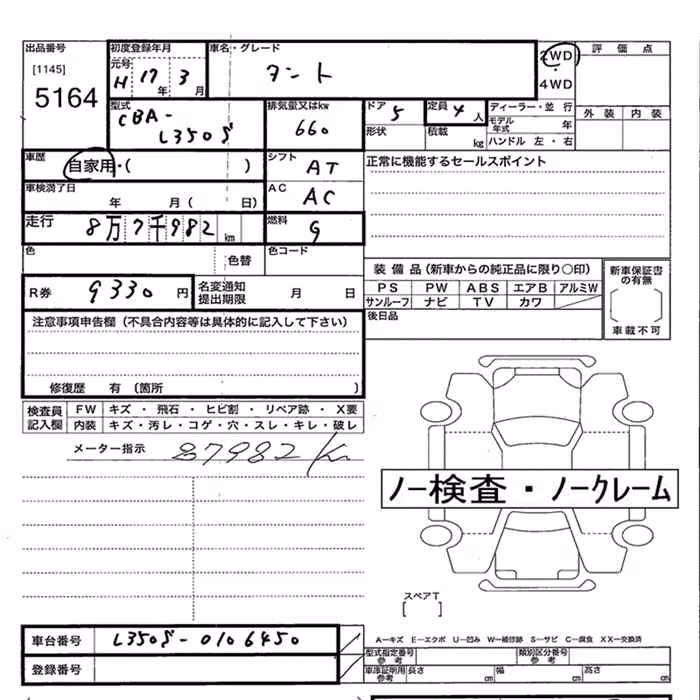 出品番号 初度登録年月 車名・グレード 2WD 評価点
[1145] 元号 H 17年 3月 タント ・
5164 4WD
型式 排気量又はkw ドア 5 定員 4人 ディーラー・並 行 外装 内装
CBA- 660 形状 積載 kg モデル年式 年
L350S ハンドル 左・右
車歴 自家用・( ) シフト AT 正常に機能するセールスポイント
車検満了日 年 月( 日) AC AC
走行 8万7千982km 燃料 G
色 色替 色コード
装備品(新車からの純正品に限り○印) 新車保証書の有無
R券 9330円 名変通知提出期限 月 日 PS PW ABS エアB アルミW
サンルーフ ナビ TV カワ
[ ]
注意事項申告欄(不具合内容等は具体的に記入して下さい) 後日品 車載不可
修復歴 有 (箇所 )
検査員記入欄 FW キズ ・ 飛石 ・ ヒビ割 ・ リペア跡 ・ X要
内装 キズ・汚レ・コゲ・穴・スレ・キレ・破レ
メーター指示 87982Km
ノー検査・ノークレーム
スペアT
[ ]
車台番号 L350S-0106450 A−キズ E−エクボ U−凹み W−補修跡 S−サビ C−腐食 XX−交換済
登録番号 型式指定番号 参考 類別区分番号 参考
車庫証明用 参考 長さ cm 幅 cm 高さ cm